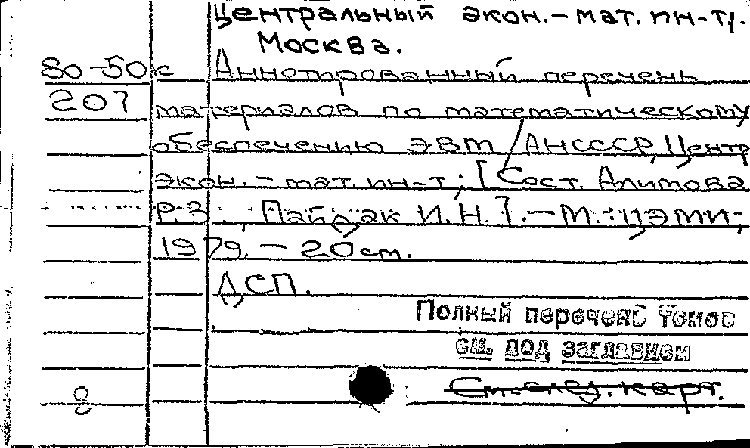 Центральный экон.-мат. ин-т,.
Москва.
80-50с Аннотированный перечень
207 материалов по математическому
обеспечению ЭВМ / АН СССР, Центр.
экон.-мат. ин-т; [Сост. Алимова
Р.З., Пайдак И.Н.].-М.:ЦЭМИ,
1979.-20см.
ДСП.
Полный перечень томов
см. под заглавием
См. след. карт.
8